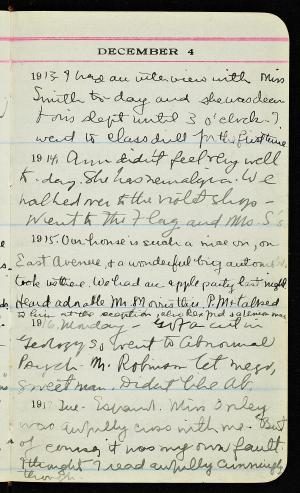 DECEMBER 4
1913 I had an interview with Miss
Smith to-day and she was dear
slept until 3 o'clock. I
went to class dull for the first time
1914 Ann didn't feel very well
to-day. She has neuralgia. We
walked over to the violet shop -
Went to the Flag and Mrs. S's
1915. Our house is such a nice one, on
East Avenue, & a wonderful big automobile
took us there. We had an apple party last night
Heard adorable Mr. Morris this P.M. & talked
to him at the reception, also Rev. and
1916. Monday - Got a cut in
Geology so went to Abnormal
Psych. Mr. Robinson let me go,
sweet man. Didn't like Ab.
191 Tue - Miss
was awfully cross with me. But
of course, it was my own fault.
I thought I read awfully cunningly